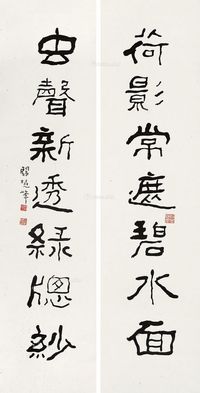 荷影常遮碧水面
虫聲新透緑牕紗